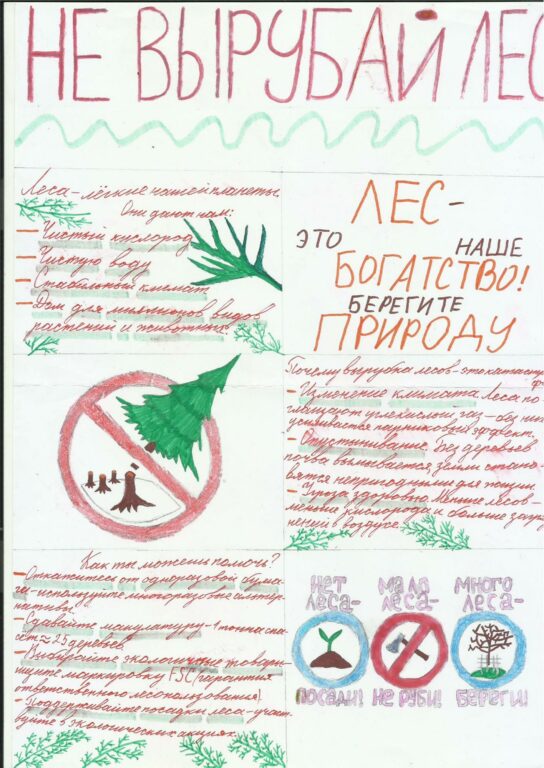 НЕ ВЫРУБАЙ ЛЕС
Леса - лёгкие нашей планеты.
Они дают нам:
- Чистый кислород
- Чистую воду
- Стабильный климат
- Дом для миллионов видов
растений и животных.
ЛЕС -
ЭТО НАШЕ
БОГАТСТВО!
БЕРЕГИТЕ
ПРИРОДУ
Почему вырубка лесов - это катастр
- Изменение климата. Леса по
глощают углекислый газ - без них
усиливается парниковый эффект.
- Опустынивание. Без деревьев
почва вымывается, земли стано
вятся непригодными для жизни
- Угроза здоровью. Меньше лесов -
меньше кислорода и больше загряз
нений в воздухе.
Как ты можешь помочь?
- Откажитесь от одноразовой бума-
ги - используйте многоразовые альтер-
нативы.
- Сдавайте макулатуру - 1 тонна спа
сёт ≈ 25 деревьев.
- Выбирайте экологичные товары -
ищите маркировку FSC (гарантия
ответственного лесопользования)
- Поддерживайте посадки леса - участ
вуйте в экологических акциях.
НЕТ ЛЕСА -
ПОСАДИ!
МАЛО ЛЕСА -
НЕ РУБИ!
МНОГО ЛЕСА -
БЕРЕГИ!